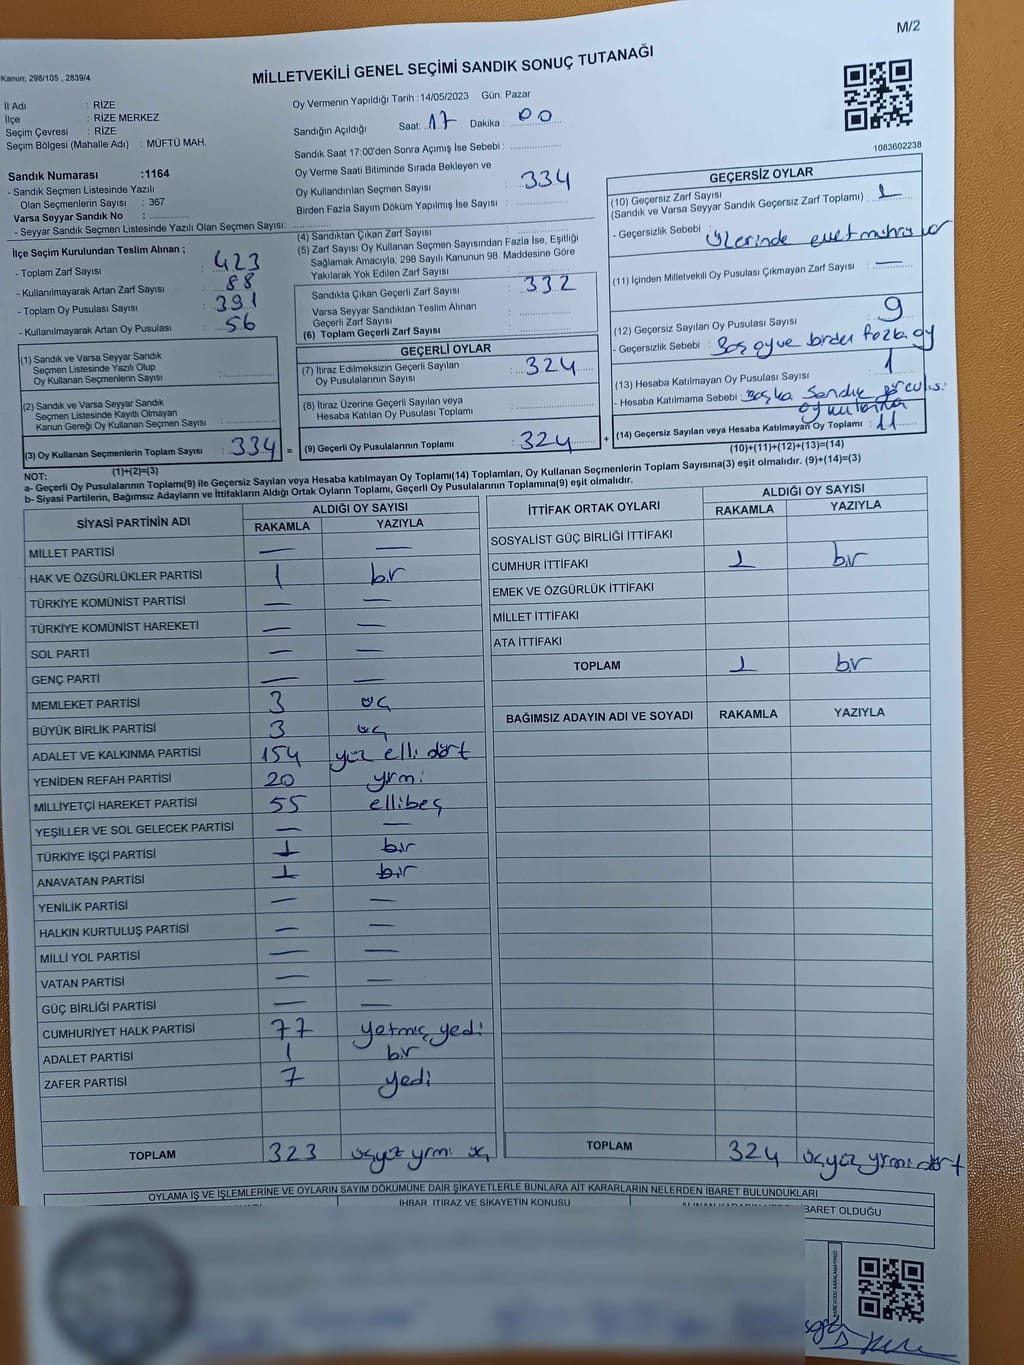 M/2
Kanun; 298/105 , 2839/4
MİLLETVEKİLİ GENEL SEÇİMİ SANDIK SONUÇ TUTANAĞI
İl Adı : RİZE
İlçe : RİZE MERKEZ
Seçim Çevresi : RİZE
Seçim Bölgesi (Mahalle Adı) : MÜFTÜ MAH.
Sandık Numarası :1164
- Sandık Seçmen Listesinde Yazılı
Olan Seçmenlerin Sayısı : 367
Varsa Seyyar Sandık No :
- Seyyar Sandık Seçmen Listesinde Yazılı Olan Seçmen Sayısı:
Oy Vermenin Yapıldığı Tarih :14/05/2023 Gün: Pazar
Sandığın Açıldığı Saat: 17 Dakika : 00
Sandık Saat 17:00'den Sonra Açımış İse Sebebi :
Oy Verme Saati Bitiminde Sırada Bekleyen ve
Oy Kullandırılan Seçmen Sayısı : 334
Birden Fazla Sayım Döküm Yapılmış İse Sayısı :
1083602238
İlçe Seçim Kurulundan Teslim Alınan ;
- Toplam Zarf Sayısı : 423
- Kullanılmayarak Artan Zarf Sayısı : 88
- Toplam Oy Pusulası Sayısı : 391
- Kullanılmayarak Artan Oy Pusulası : 56
(1) Sandık ve Varsa Seyyar Sandık
Seçmen Listesinde Yazılı Olup
Oy Kullanan Seçmenlerin Sayısı :
(2) Sandık ve Varsa Seyyar Sandık
Seçmen Listesinde Kayıtlı Olmayan
Kanun Gereği Oy Kullanan Seçmen Sayısı :
(3) Oy Kullanan Seçmenlerin Toplam Sayısı : 334 =
(1)+(2)=(3)
(4) Sandıktan Çıkan Zarf Sayısı :
(5) Zarf Sayısı Oy Kullanan Seçmen Sayısından Fazla İse, Eşitliği
Sağlamak Amacıyla, 298 Sayılı Kanunun 98. Maddesine Göre
Yakılarak Yok Edilen Zarf Sayısı :
Sandıkta Çıkan Geçerli Zarf Sayısı : 332
Varsa Seyyar Sandıktan Teslim Alınan
Geçerli Zarf Sayısı :
(6) Toplam Geçerli Zarf Sayısı :
GEÇERLİ OYLAR
(7) İtiraz Edilmeksizin Geçerli Sayılan
Oy Pusulalarının Sayısı : 324
(8) İtiraz Üzerine Geçerli Sayılan veya
Hesaba Katılan Oy Pusulası Toplamı :
(9) Geçerli Oy Pusulalarının Toplamı : 324 +
GEÇERSİZ OYLAR
(10) Geçersiz Zarf Sayısı
(Sandık ve Varsa Seyyar Sandık Geçersiz Zarf Toplamı) : 1
- Geçersizlik Sebebi :
(11) İçinden Milletvekili Oy Pusulası Çıkmayan Zarf Sayısı : —
(12) Geçersiz Sayılan Oy Pusulası Sayısı : 9
- Geçersizlik Sebebi : Boş oy ve birden fazla oy
(13) Hesaba Katılmayan Oy Pusulası Sayısı : 1
- Hesaba Katılmama Sebebi : Başka Sandık
(14) Geçersiz Sayılan veya Hesaba Katılmayan Oy Toplamı : 11
(10)+(11)+(12)+(13)=(14)
NOT:
a- Geçerli Oy Pusulalarının Toplamı(9) ile Geçersiz Sayılan veya Hesaba katılmayan Oy Toplamı(14) Toplamları, Oy Kullanan Seçmenlerin Toplam Sayısına(3) eşit olmalıdır. (9)+(14)=(3)
b- Siyasi Partilerin, Bağımsız Adayların ve İttifakların Aldığı Ortak Oyların Toplamı, Geçerli Oy Pusulalarının Toplamına(9) eşit olmalıdır.
SİYASİ PARTİNİN ADI ALDIĞI OY SAYISI
RAKAMLA YAZIYLA
MİLLET PARTİSİ — —
HAK VE ÖZGÜRLÜKLER PARTİSİ 1 bir
TÜRKİYE KOMÜNİST PARTİSİ — —
TÜRKİYE KOMÜNİST HAREKETİ — —
SOL PARTİ — —
GENÇ PARTİ — —
MEMLEKET PARTİSİ 3 üç
BÜYÜK BİRLİK PARTİSİ 3 üç
ADALET VE KALKINMA PARTİSİ 154 yüz elli dört
YENİDEN REFAH PARTİSİ 20 yrmi
MİLLİYETÇİ HAREKET PARTİSİ 55 ellibeş
YEŞİLLER VE SOL GELECEK PARTİSİ — —
TÜRKİYE İŞÇİ PARTİSİ 1 bir
ANAVATAN PARTİSİ 1 bir
YENİLİK PARTİSİ — —
HALKIN KURTULUŞ PARTİSİ — —
MİLLİ YOL PARTİSİ — —
VATAN PARTİSİ — —
GÜÇ BİRLİĞİ PARTİSİ — —
CUMHURİYET HALK PARTİSİ 77 yetmiş yedi
ADALET PARTİSİ 1 bir
ZAFER PARTİSİ 7 yedi
TOPLAM 323 üçyüz yrmi üç
İTTİFAK ORTAK OYLARI ALDIĞI OY SAYISI
RAKAMLA YAZIYLA
SOSYALİST GÜÇ BİRLİĞİ İTTİFAKI
CUMHUR İTTİFAKI 1 bir
EMEK VE ÖZGÜRLÜK İTTİFAKI
MİLLET İTTİFAKI
ATA İTTİFAKI
TOPLAM 1 bir
BAĞIMSIZ ADAYIN ADI VE SOYADI RAKAMLA YAZIYLA
TOPLAM 324 üçyüz yrmi dört
OYLAMA İŞ VE İŞLEMLERİNE VE OYLARIN SAYIM DÖKÜMÜNE DAİR ŞİKAYETLERLE BUNLARA AİT KARARLARIN NELERDEN İBARET BULUNDUKLARI
İHBAR, İTİRAZ VE ŞİKAYETİN KONUSU
BARET OLDUĞU